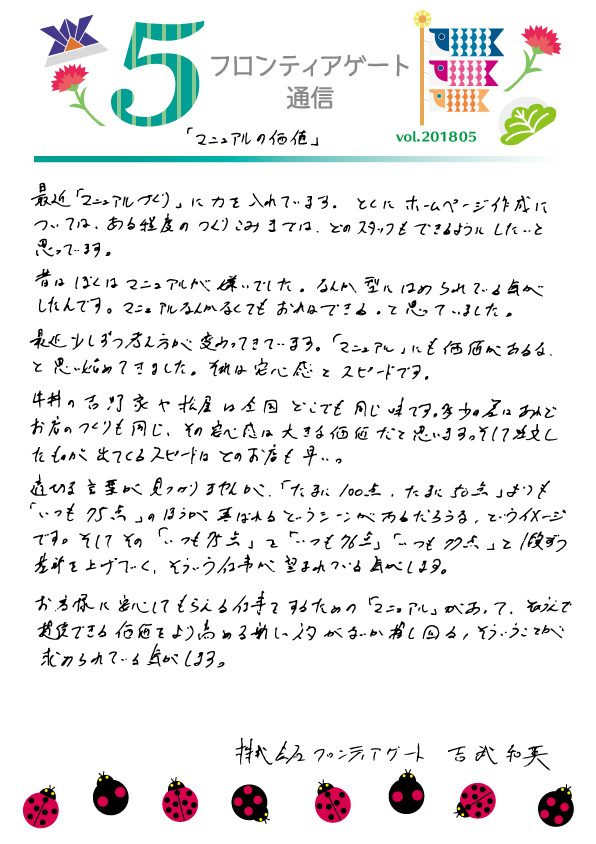 5
フロンティアゲート
通信
vol.201805
「マニュアルの価値」
最近「マニュアルづくり」に力を入れています。とくにホームページ作成に
ついては、ある程度のつくりこみまでは、どのスタッフもできるようにしたいと
思っています。
昔はぼくはマニュアルが嫌いでした。なんか型にはめられている気が
したんです。マニュアルなんかなくてもおれはできる。と思っていました。
最近少しずつ考え方が変わってきています。「マニュアル」にも価値があるな、
と思い始めてきました。それは安心感とスピードです。
牛丼の吉野家や松屋は全国どこでも同じ味です。多少の差はあれど
お店のつくりも同じ、その安心感は大きな価値だと思います。そして注文し
たものが出てくるスピードはどのお店も早い。
適切な言葉が見つかりませんが、「たまに100点、たまに50点」よりも
「いつも75点」のほうが喜ばれるというシーンがあるだろうな、というイメージ
です。そしてその「いつも75点」を「いつも76点」「いつも77点」と1段ずつ
基準を上げていく、そういう仕事が望まれている気がします。
お客様に安心してもらえる仕事をするための「マニュアル」があって、そのうえで
提供できる価値をより高める新しいネタがないか探し回る、そういうことが
求められている気がします。
株式会社フロンティアゲート 吉武和英